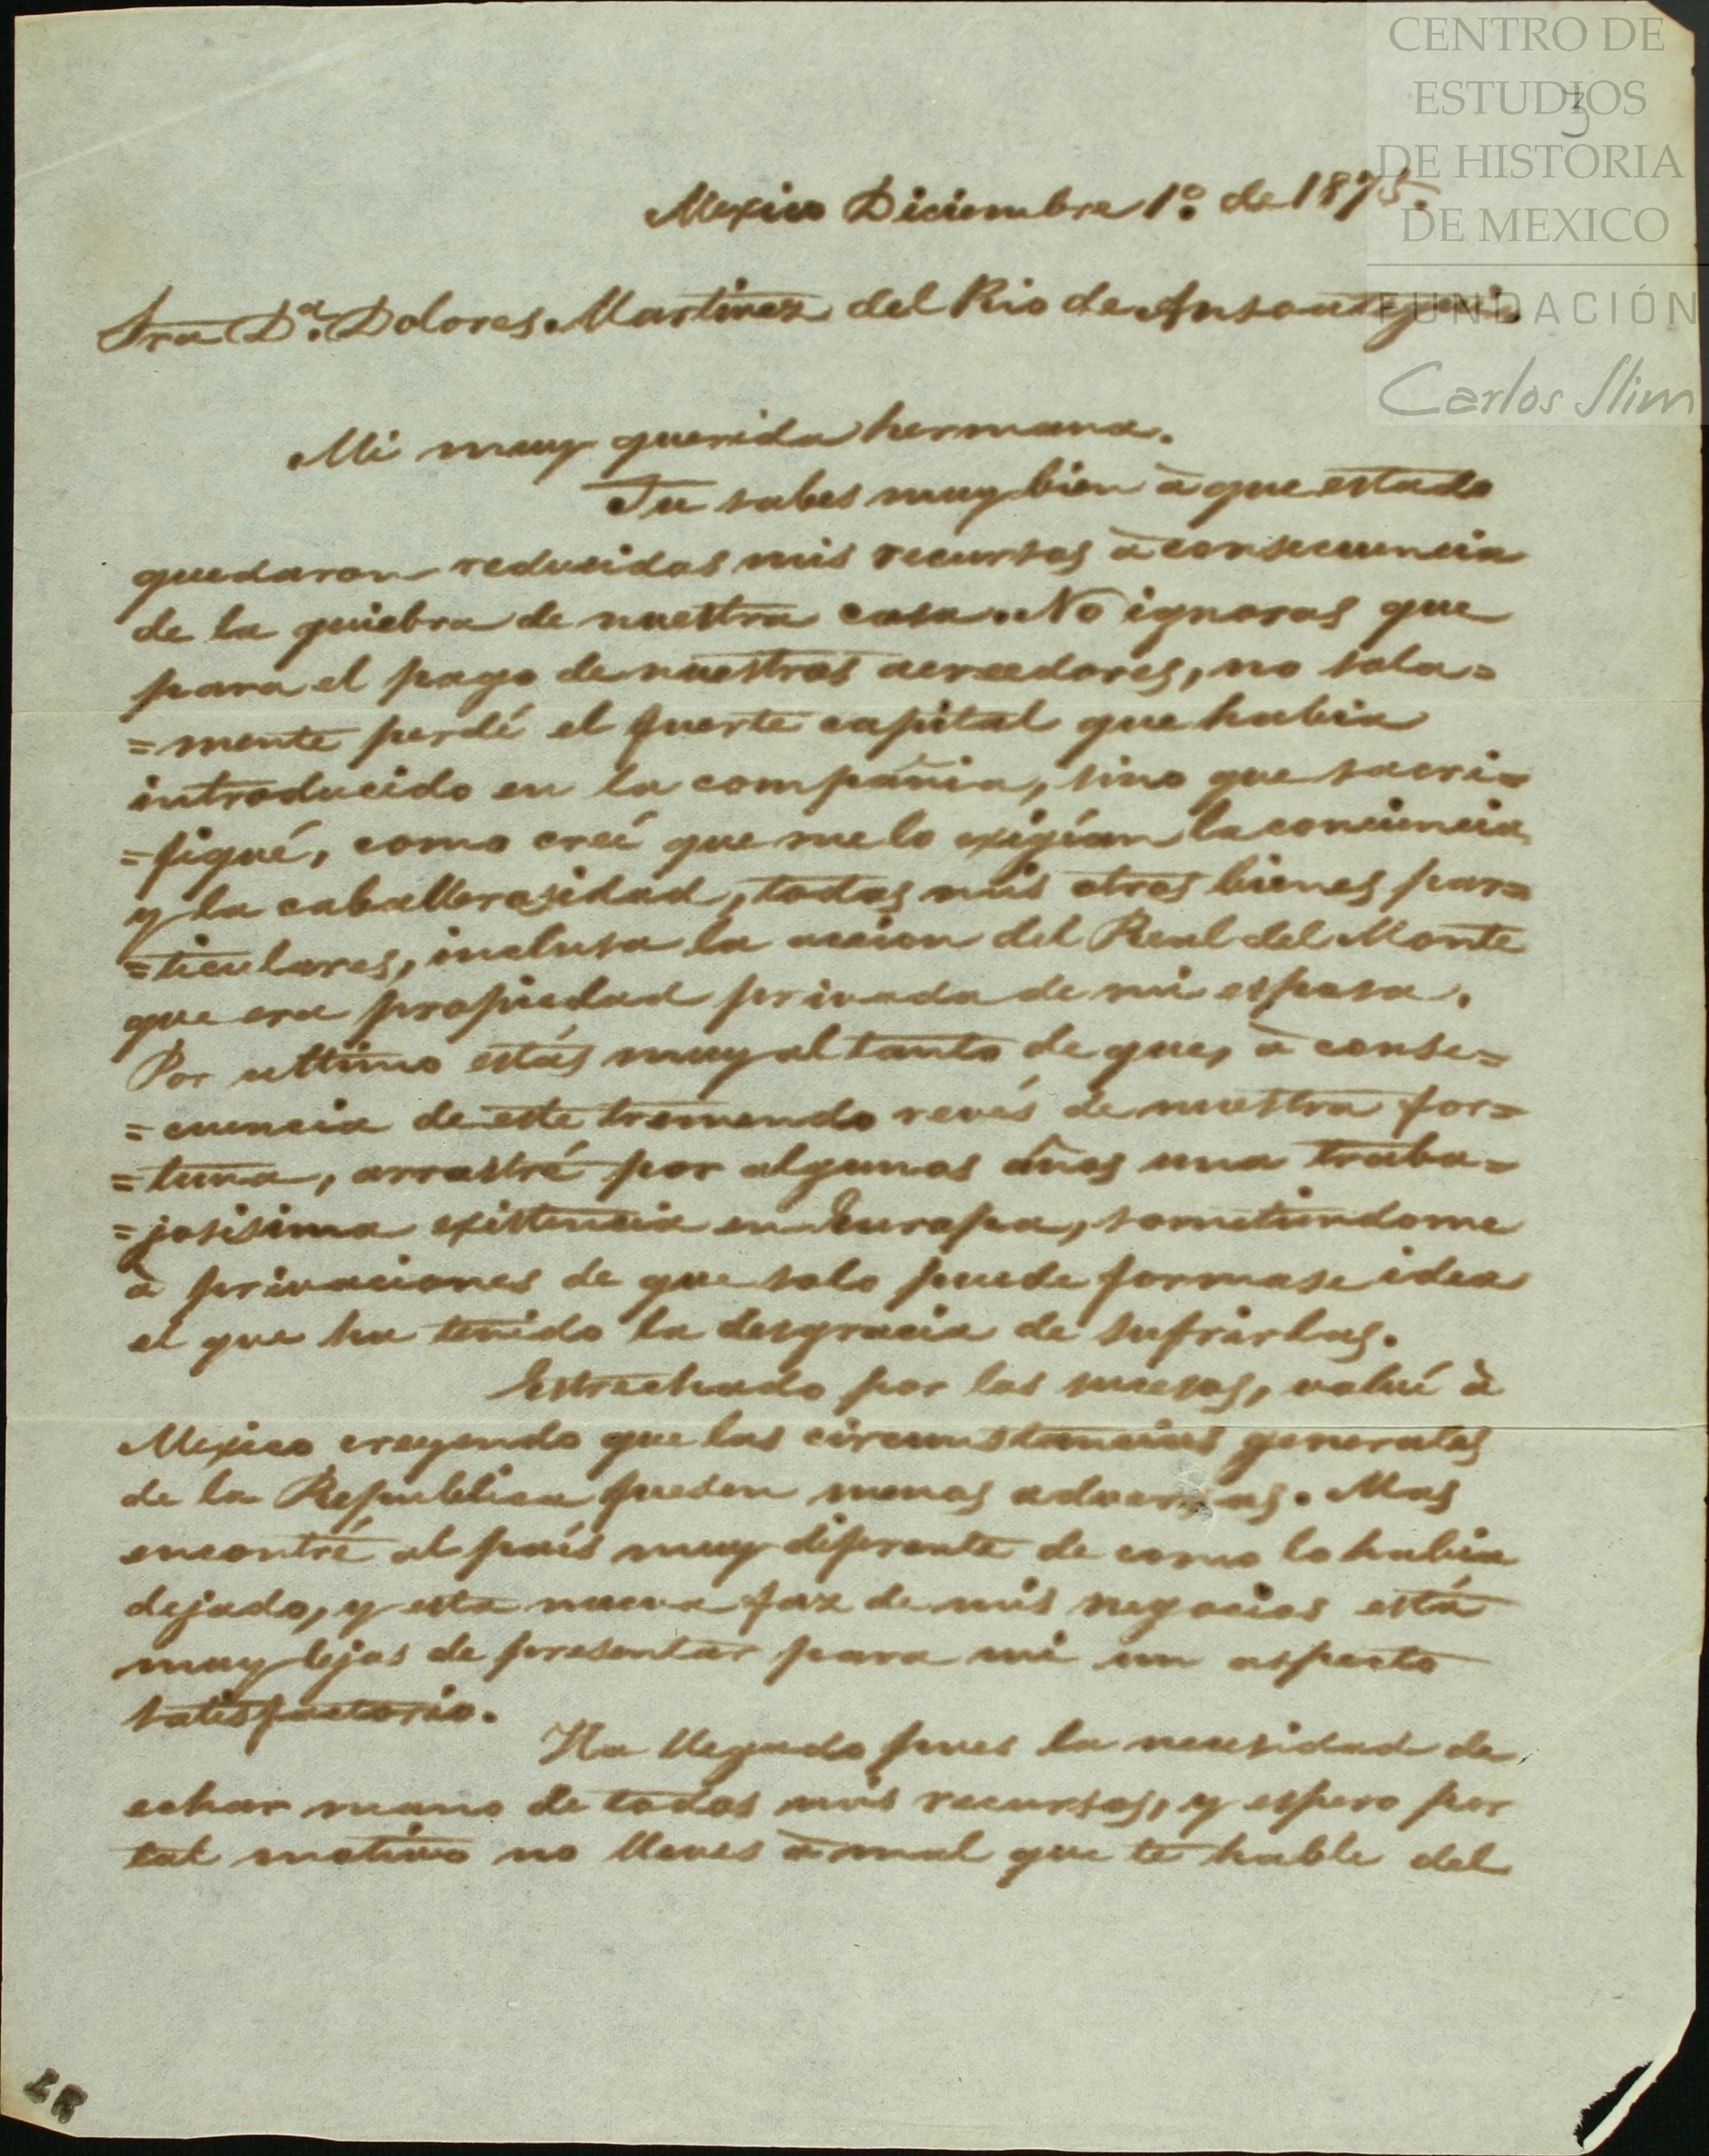 CENTRO DE
ESTUDIOS
DE HISTORIA
DE MEXICO
FUNDACIÓN
Carlos Slim
3
Mexico Diciembre 1º de 1875.
Sra Dª. Dolores Martinez del Rio de Ansoategui.
Mi muy querida hermana.
Tu sabes muy bien à que estado
quedaron reducidos mis recursos à consecuencia
de la quiebra de nuestra casa. No ignoras que
para el pago de nuestros acreedores, no sola=
=mente perdé el fuerte capital que habia
introducido en la compañia, sino que sacri=
=fiqué, como creí que me lo exigían la conciencia
y la caballerosidad, todos mis otros bienes par=
=ticulares, inclusa la accion del Real del Monte
que era propiedad privada de mi esposa.
Por ultimo estás muy al tanto de que, à conse=
=cuencia de este tremendo revés de nuestra for=
=tuna, arrastré por algunos años una traba=
=josisima existencia en Europa, sometiendome
à privaciones de que solo puede formase idea
el que ha tenido la desgracia de sufrirlas.
Estrechado por los sucesos, volví à
Mexico creyendo que las circunstancias generales
de la Republica fuesen menos adversas. Mas
encontré al país muy diferente de como lo habia
dejado, y esta nueva faz de mis negocios está
muy lejos de presentar para mi un aspecto
satisfactorio.
Ha llegado pues la necesidad de
echar mano de todos mis recursos, y espero por
tal motivo no lleves à mal que te hable del